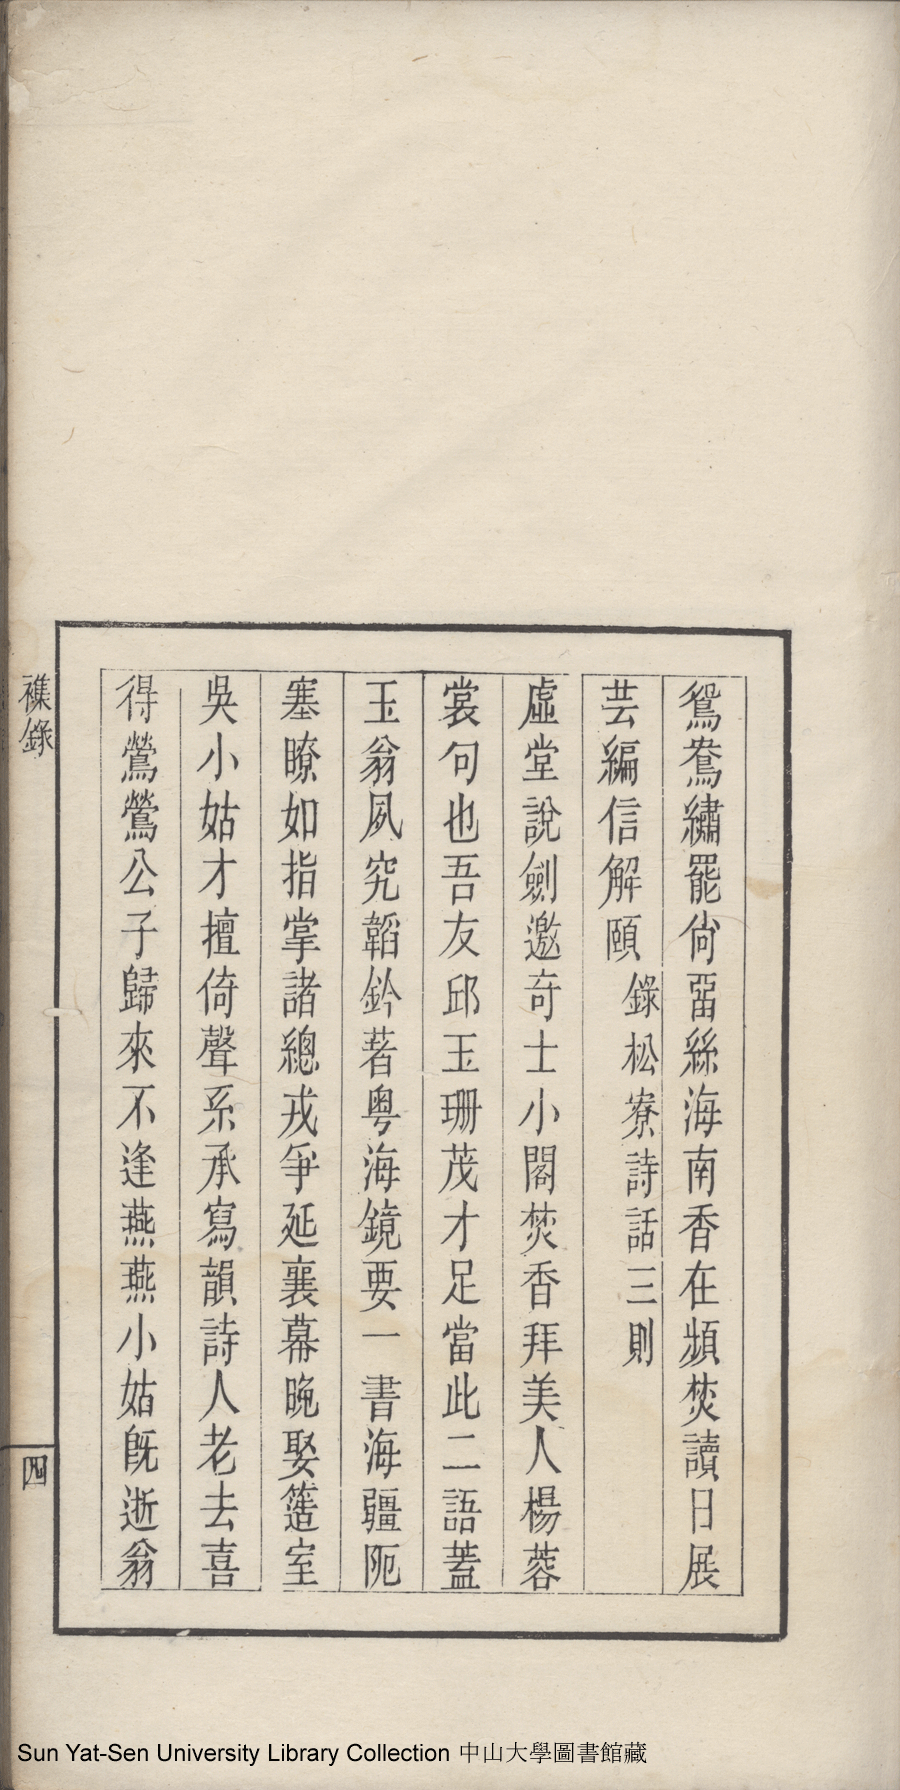 鴛鴦繡罷尙畱絲海南香在頻焚讀日展
芸編信解頤 錄松寮詩話三則
虛堂說劍邀奇士小閣焚香拜美人楊蓉
裳句也吾友邱玉珊茂才足當此二語蓋
玉翁夙究韜鈐著粵海鏡要一書海疆阨
塞瞭如指掌諸總戎爭延襄幕晚娶簉室
吳小姑才擅倚聲系承寫韻詩人老去喜
得鶯鶯公子歸來不逢燕燕小姑旣逝翁
襍錄
四
Sun Yat-Sen University Library Collection 中山大學圖書館藏